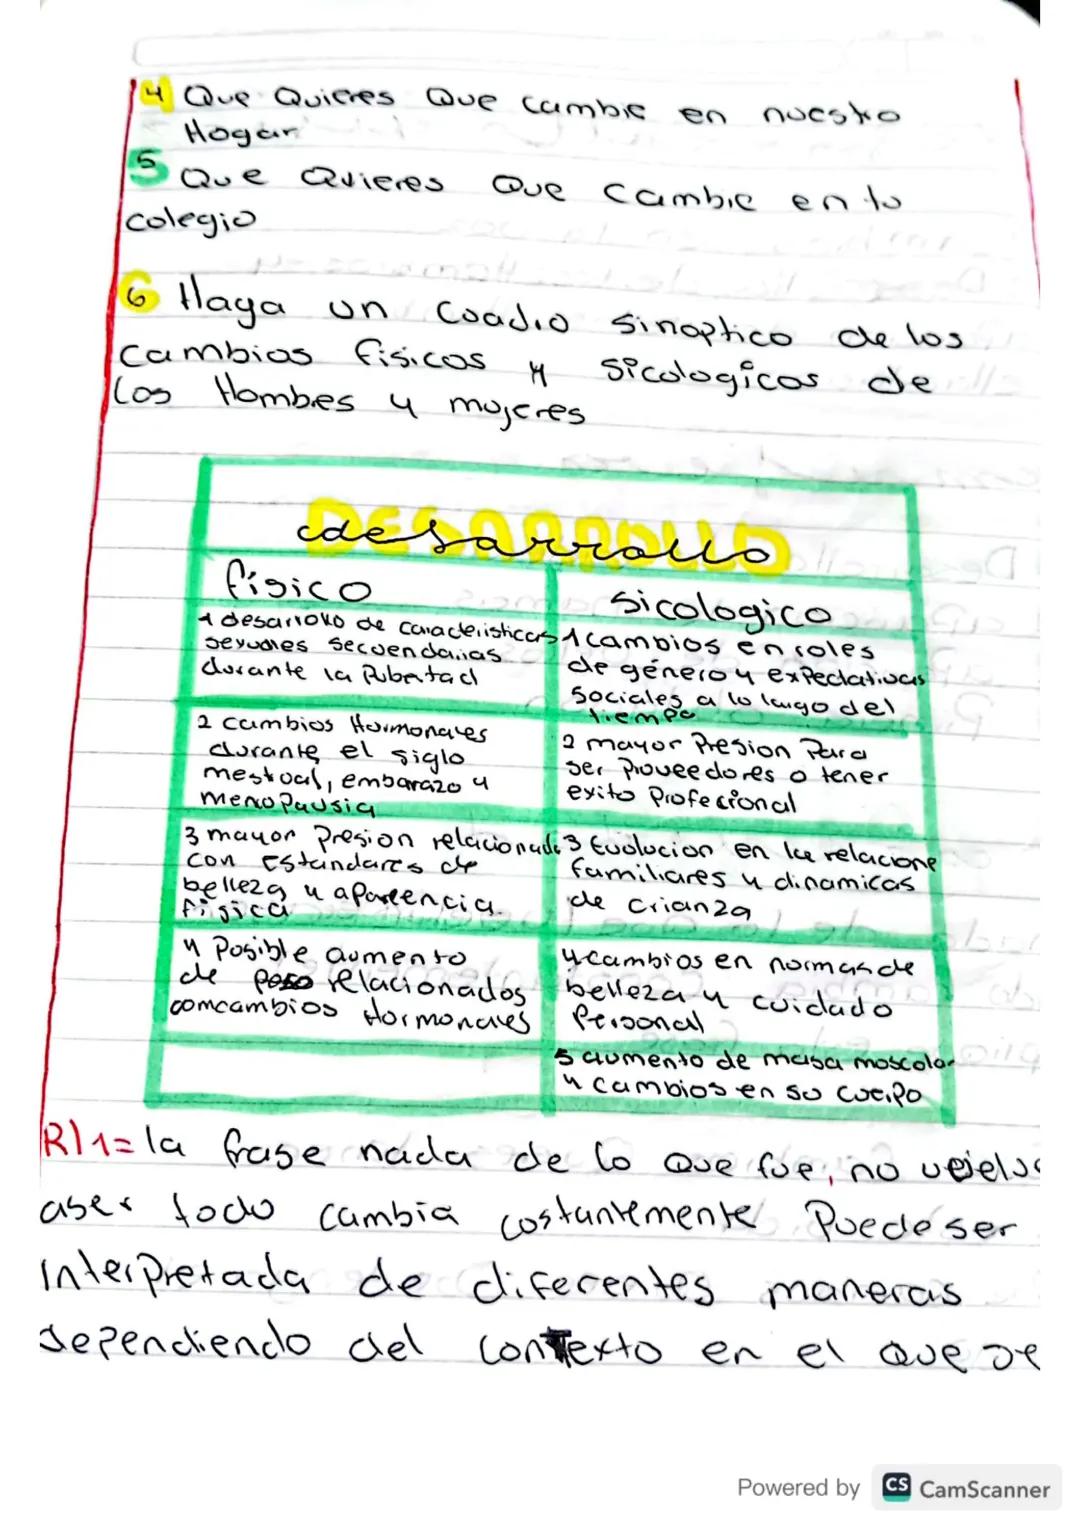 4 Que Quieres Que cambie en nuestro
Hogar
5 Que Quieres Que cambie en tu
colegio
6 Haga un cuadro sinoptico de los
cambios fisicos y sicologicos de
los Hombres y mujeres
DESARROLLO
desarrollo
físico
sicologico
1 desarrollo de caracteristicas
sexuales secuendarias
durante la Pubertad
1 cambios en roles
de género y expectativas
sociales a lo largo del
tiempo
2 cambios Hormonales
durante el siglo
mestrual, embarazo y
menopausia
2 mayor Presion Para
ser Proveedores o tener
exito Profecional
3 mayor Presion relacionada
con estandares de
belleza y aparencia
física
3 Evolucion en las relacione
familiares y dinamicas
de crianza
4 Posible aumento
de peso relacionados
com cambios Hormonales
4 cambios en normas de
belleza y cuidado
Personal
5 aumento de masa moscolar
y cambios en su cuerpo
R/1= la frase nada de lo que fue, no
aser todo cambia costantemente Puede ser
interpretada de diferentes maneras
dependiendo del contexto en el que se
Powered by CS CamScanner